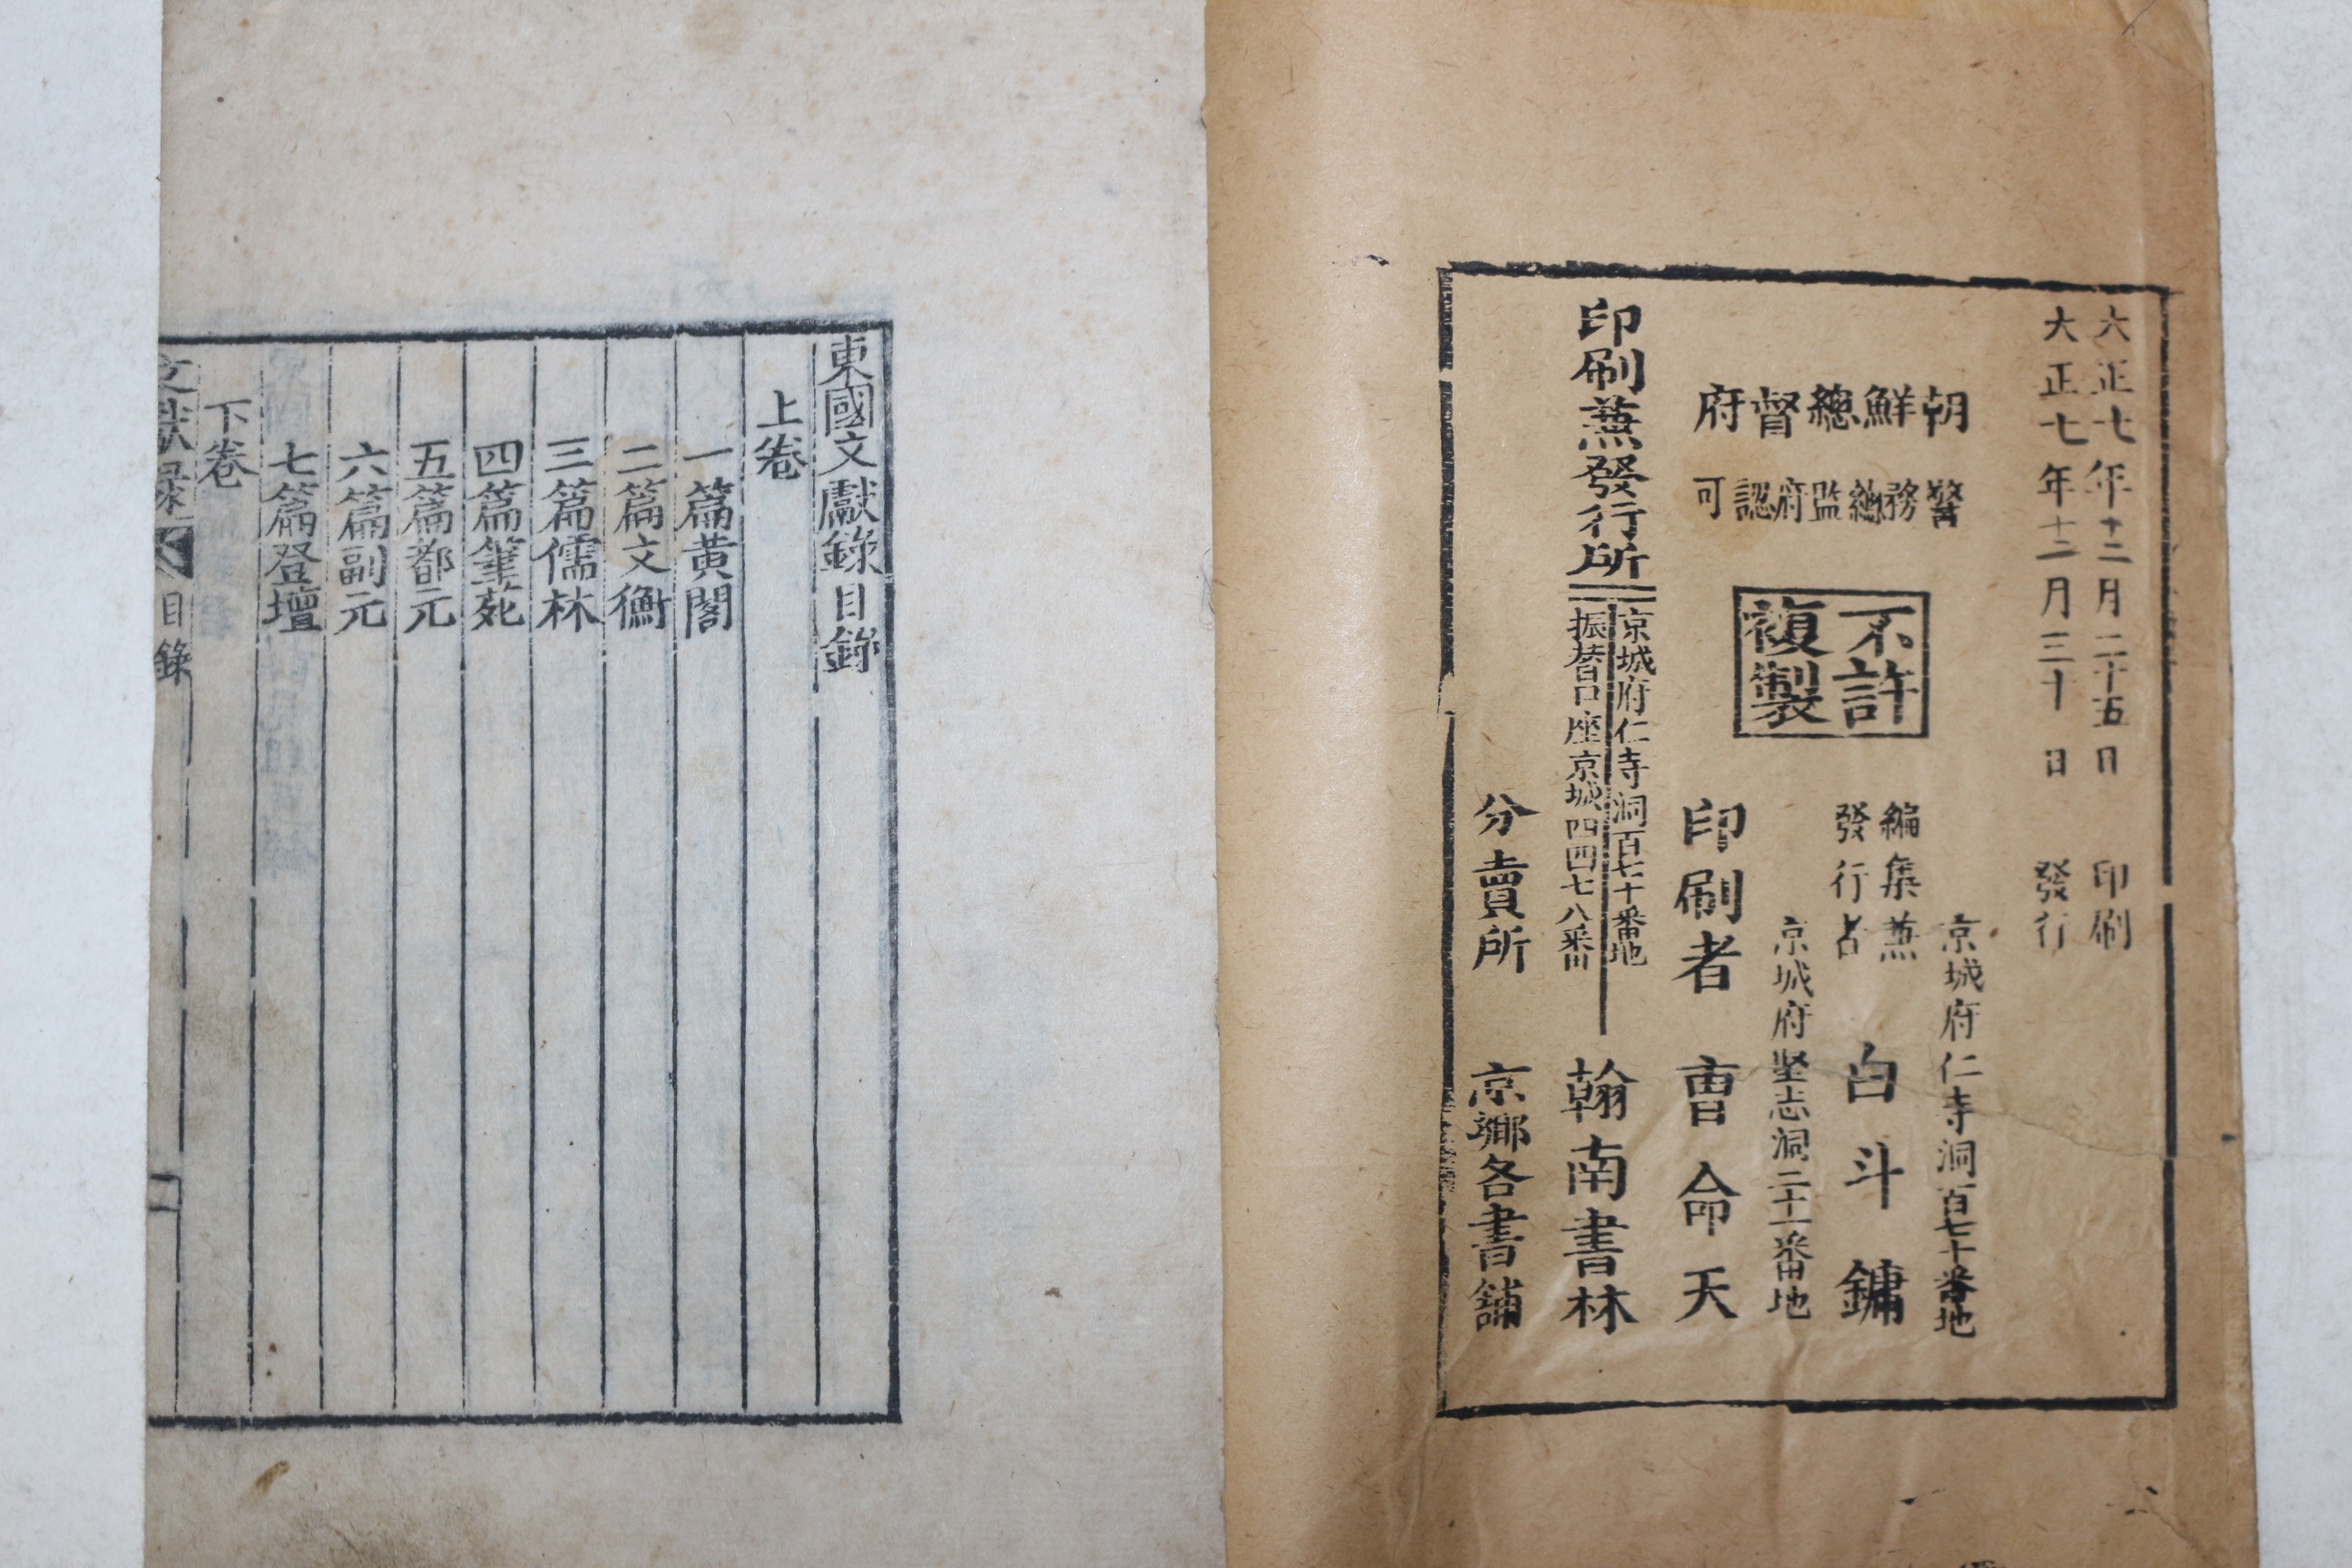 大正七年十二月二十五日 印刷
大正七年十二月三十日 發行
朝鮮總督府
警務總監府認可
不許
複製
京城府仁寺洞百七十番地
編集兼
發行者
白斗鏞
京城府堅志洞三十一番地
印刷者 曺命天
印刷兼發行所
京城府仁寺洞百七十番地
振替口座京城四四七八番
翰南書林
分賣所 京鄉各書舖
東國文獻錄目錄
上卷
一篇黃閣
二篇文衡
三篇儒林
四篇筆苑
五篇都元
六篇副元
七篇登壇
下卷
文獻錄 目錄